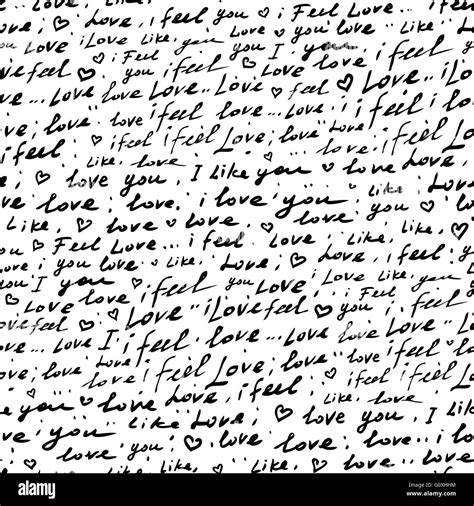 Love.. i feel you ♡ i Feel Love..
♡ i Love Like, you Love you love I
i Feel you i feel Love.. i Love
love... Love love Love.. i feel i lo
i, love i feel Love; love
i feel. Like, love i feel
i, ♡ love you, I Like you love
love love; i love you
Like, ♡ love love. Like, ♡
you i Feel Love... i feel. love Like,
i you love; Like, Love; i feel Like, love
you I you i Like you
love love i feel Love i Feel
i Love feel ♡
... Love I feel love... Love
i feel Love; love i feel
love; love i feel.
you love Like Love, ♡ love you, I
love you ♡ love love
Like, i feel ♡ love. Like,
alamy
Image ID: G0XHHM
www.alamy.com